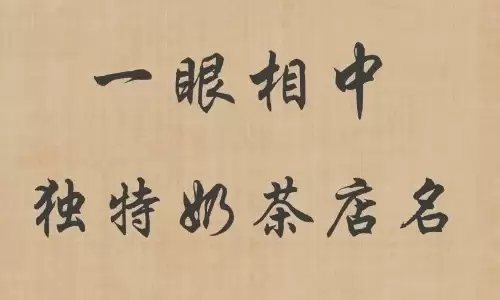 一眼相中
独特奶茶店名